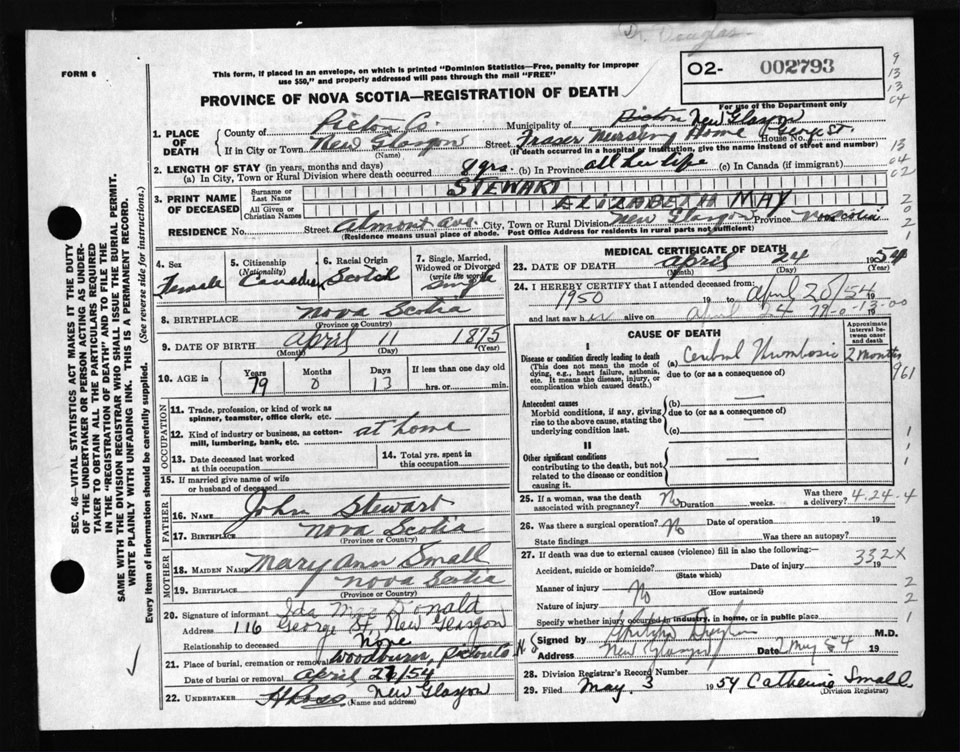 Dr. Douglas
FORM 6
This form, if placed in an envelope, on which is printed "Dominion Statistics—Free, penalty for improper
use $50," and properly addressed will pass through the mail "FREE"
02- 002793
PROVINCE OF NOVA SCOTIA—REGISTRATION OF DEATH
For use of the Department only
1. PLACE OF DEATH
County of Pictou Co. Municipality of Pictou New Glasgow
If in City or Town New Glasgow (Name) Street Fraser Nursing Home House No. George St.
(If death occurred in a hospital or institution, give the name instead of street and number)
2. LENGTH OF STAY (in years, months and days)
(a) In City, Town or Rural Division where death occurred 8 yrs. (b) In Province all her life (c) In Canada (if immigrant)
3. PRINT NAME OF DECEASED
Surname or Last Name STEWART
All Given or Christian Names ELIZABETH MAY
RESIDENCE No. Street Almont Ave. City, Town or Rural Division New Glasgow Province Nova Scotia
(Residence means usual place of abode. Post Office Address for residents in rural parts not sufficient)
4. Sex Female
5. Citizenship (Nationality) Canadian
6. Racial Origin Scotch
7. Single, Married, Widowed or Divorced (write the word) Single
8. BIRTHPLACE Nova Scotia
(Province or Country)
9. DATE OF BIRTH April 11 1875
(Month) (Day) (Year)
10. AGE in Years 79 Months 0 Days 13 If less than one day old hrs. or min.
OCCUPATION
11. Trade, profession, or kind of work as spinner, teamster, office clerk, etc.
12. Kind of industry or business, as cotton-mill, lumbering, bank, etc. at home
13. Date deceased last worked at this occupation
14. Total yrs. spent in this occupation
15. If married give name of wife or husband of deceased
FATHER
16. NAME John Stewart
17. BIRTHPLACE Nova Scotia
(Province or Country)
MOTHER
18. MAIDEN NAME Mary Ann Small
19. BIRTHPLACE Nova Scotia
(Province or Country)
20. Signature of informant Ida MacDonald
Address 116 George St New Glasgow
Relationship to deceased None
21. Place of burial, cremation or removal Woodburn, Pictou Co
Date of burial or removal April 26/54
22. UNDERTAKER H Ross New Glasgow
(Name and address)
MEDICAL CERTIFICATE OF DEATH
23. DATE OF DEATH April 24 1954
(Month) (Day) (Year)
24. I HEREBY CERTIFY that I attended deceased from:
1950 19 to April 20/54 19
and last saw her alive on April 24 79-0-13-00
CAUSE OF DEATH
Approximate interval between onset and death
I
Disease or condition directly leading to death (a) Cerebral Thrombosis 2 months
(This does not mean the mode of dying, e.g., heart failure, asthenia, etc. It means the disease, injury, or complication which caused death.)
due to (or as a consequence of)
Antecedent causes
Morbid conditions, if any, giving rise to the above cause, stating the underlying condition last.
(b)
due to (or as a consequence of)
(c)
II
Other significant conditions
contributing to the death, but not related to the disease or condition causing it.
25. If a woman, was the death associated with pregnancy? No Duration weeks. Was there a delivery? 4-24-4
26. Was there a surgical operation? No Date of operation 19
State findings Was there an autopsy?
27. If death was due to external causes (violence) fill in also the following:
332X
Accident, suicide or homicide? (State which) Date of injury 19
Manner of injury No (How sustained)
Nature of injury
Specify whether injury occurred in industry, in home, or in public place
Signed by M.D.
Address New Glasgow N S 2 May 54 19
28. Division Registrar's Record Number
29. Filed May 3 1954 Catherine Small
(Division Registrar)
SEC. 46—VITAL STATISTICS ACT MAKES IT THE DUTY
OF THE UNDERTAKER OR PERSON ACTING AS UNDER-
TAKER TO OBTAIN ALL THE PARTICULARS REQUIRED
IN THE "REGISTRATION OF DEATH" AND TO FILE THE
SAME WITH THE DIVISION REGISTRAR WHO SHALL ISSUE THE BURIAL PERMIT.
WRITE PLAINLY WITH UNFADING INK. THIS IS A PERMANENT RECORD.
Every item of information should be carefully supplied. (See reverse side for instructions.)
9
13
13
04
13
04
02
2
0
2
1
961
1
1
1
2
2
1